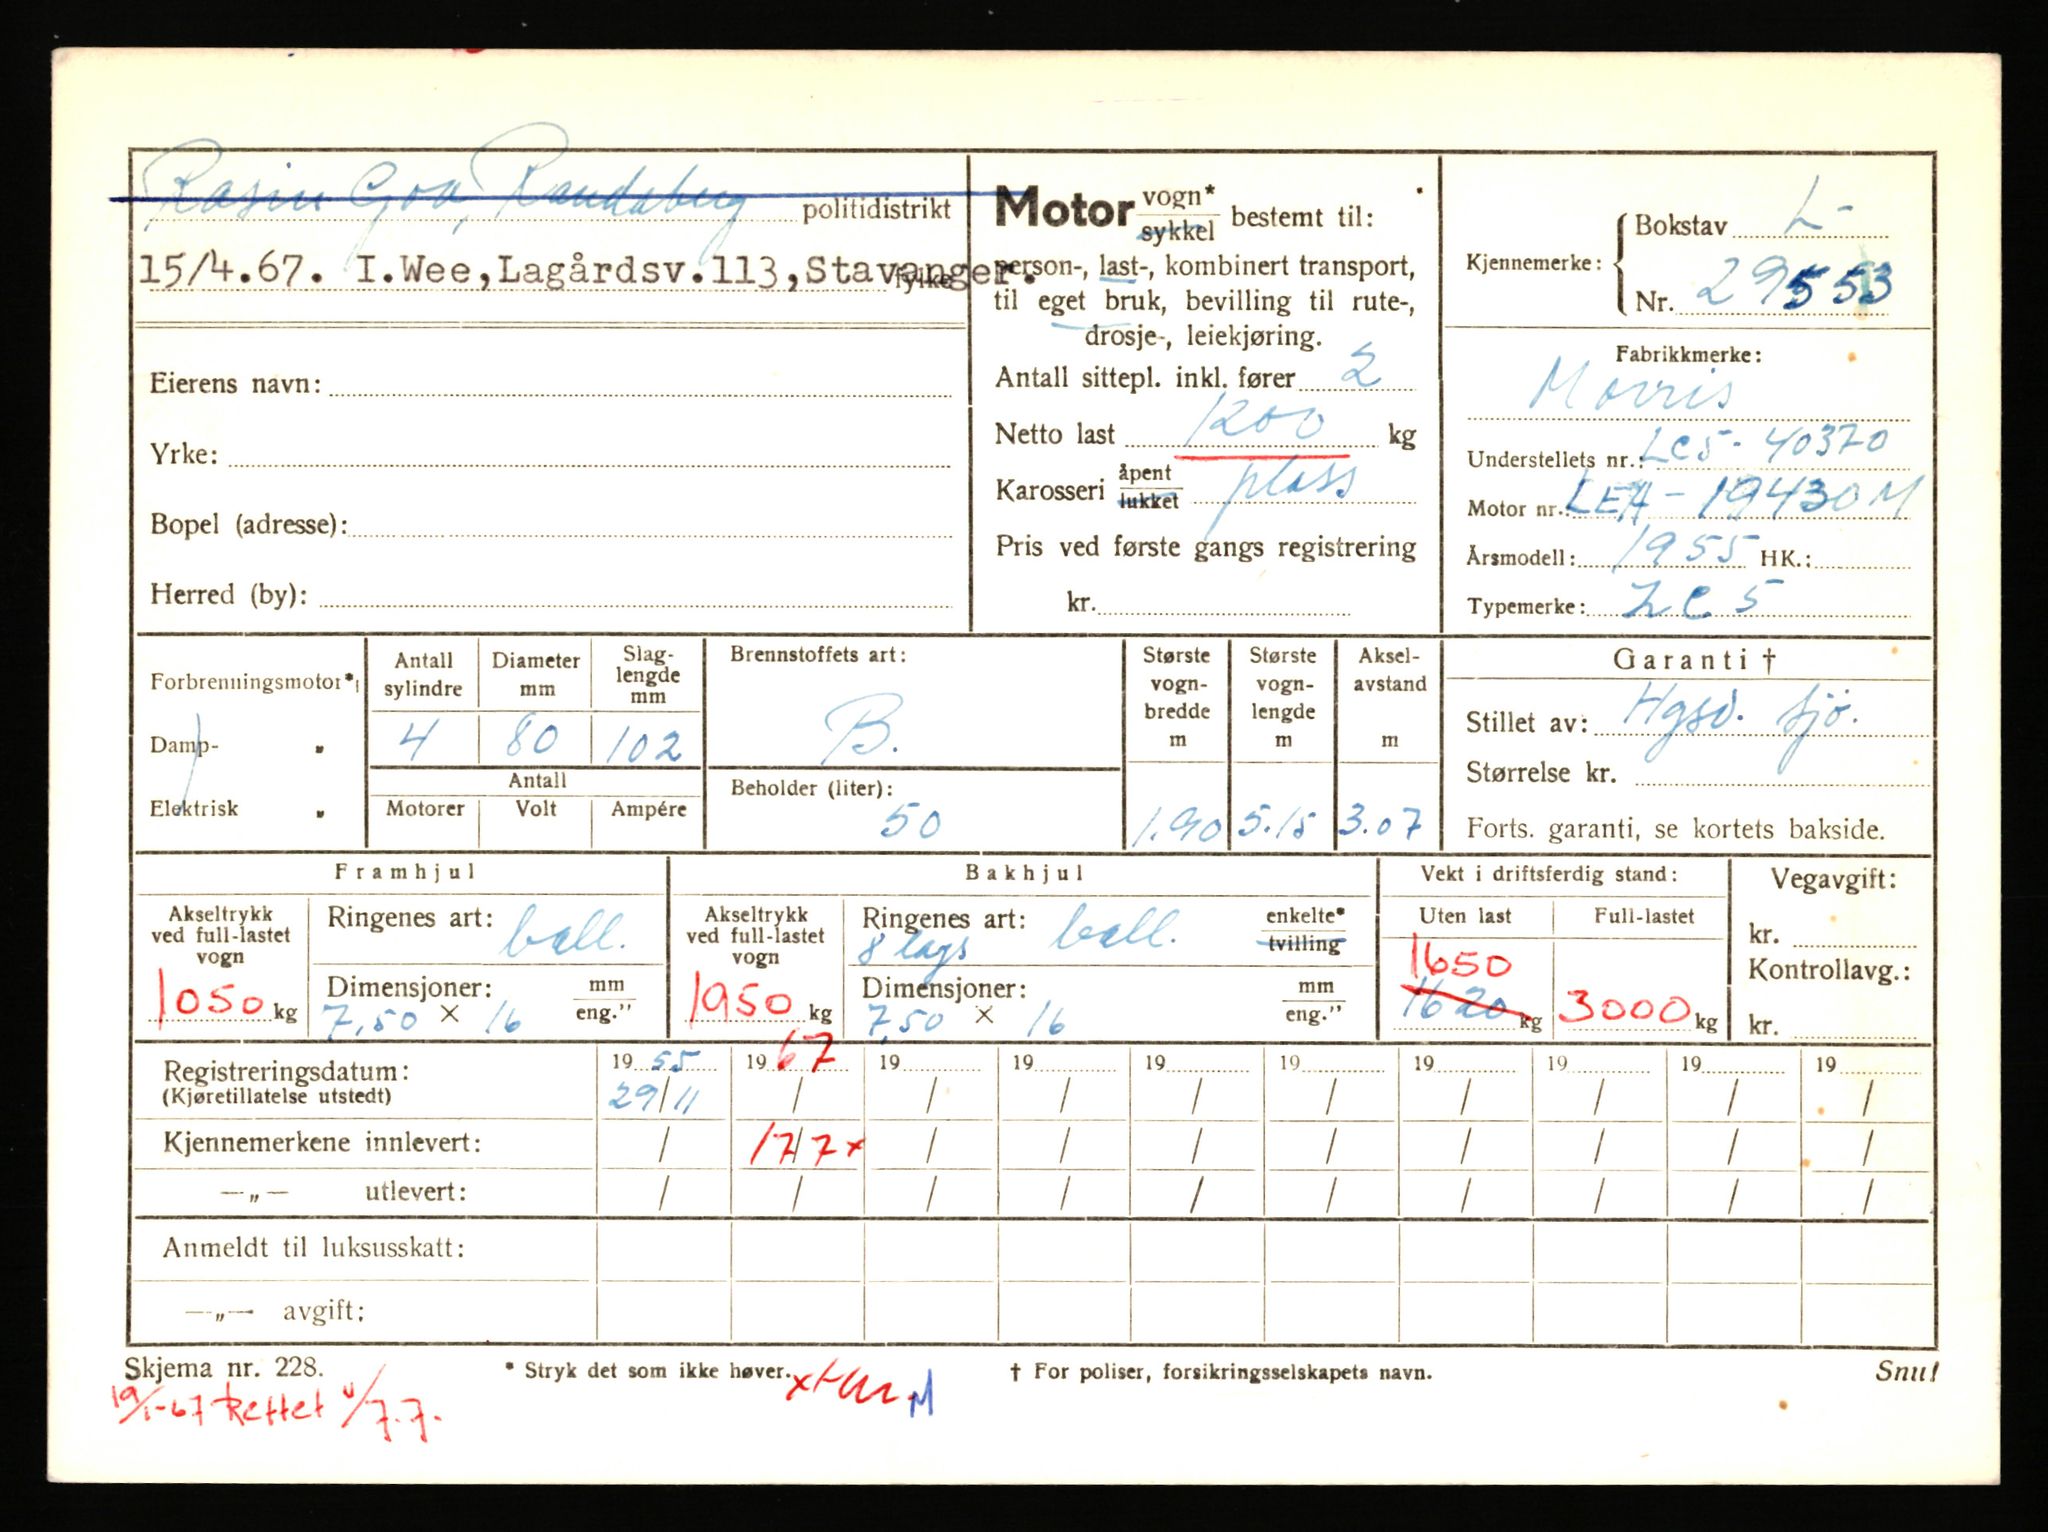 Rasim Goa, Randaberg politidistrikt
15/4.67. I.Wee,Lagårdsv.113,Stavanger. fylke
Eierens navn:
Yrke:
Bopel (adresse):
Herred (by):
Motor vogn* sykkel bestemt til:
person-, last-, kombinert transport,
til eget bruk, bevilling til rute-,
drosje-, leiekjøring.
Antall sittepl. inkl. fører 2
Netto last 1200 kg
Karosseri åpent lukket plass
Pris ved første gangs registrering
kr.
Kjennemerke: Bokstav L-
Nr. 29553
Fabrikkmerke:
Morris
Understellets nr.: LC5-40370
Motor nr.: LEA-19430M
Årsmodell: 1955 HK.:
Typemerke: LC5
Forbrenningsmotor*
Damp- "
Elektrisk "
Antall sylindre 4
Diameter mm 80
Slag-lengde mm 102
Antall
Motorer Volt Ampére
Brennstoffets art:
B.
Beholder (liter):
50
Største vogn-bredde m 1.90
Største vogn-lengde m 5.15
Aksel-avstand m 3.07
Garanti †
Stillet av: Hgsd. Sjø.
Størrelse kr.
Forts. garanti, se kortets bakside.
Framhjul
Akseltrykk ved full-lastet vogn 1050 kg
Ringenes art: ball.
Dimensjoner: mm eng."
7,50 × 16
Bakhjul
Akseltrykk ved full-lastet vogn 1950 kg
Ringenes art: 8 lags ball. enkelte* tvilling
Dimensjoner: mm eng."
7,50 × 16
Vekt i driftsferdig stand:
Uten last Full-lastet
1650
1620 kg 3000 kg
Vegavgift:
kr.
Kontrollavg.:
kr.
Registreringsdatum: 19 55 19 67 19 19 19 19 19 19 19 19
(Kjøretillatelse utstedt) 29/11 / / / / / / / / /
Kjennemerkene innlevert: / 17/7x / / / / / / / /
—„— utlevert: / / / / / / / / / /
Anmeldt til luksusskatt:
—„— avgift:
Skjema nr. 228. * Stryk det som ikke høver. † For poliser, forsikringsselskapets navn. Snu!
19/1-67 Rettet 4/7.7.
M